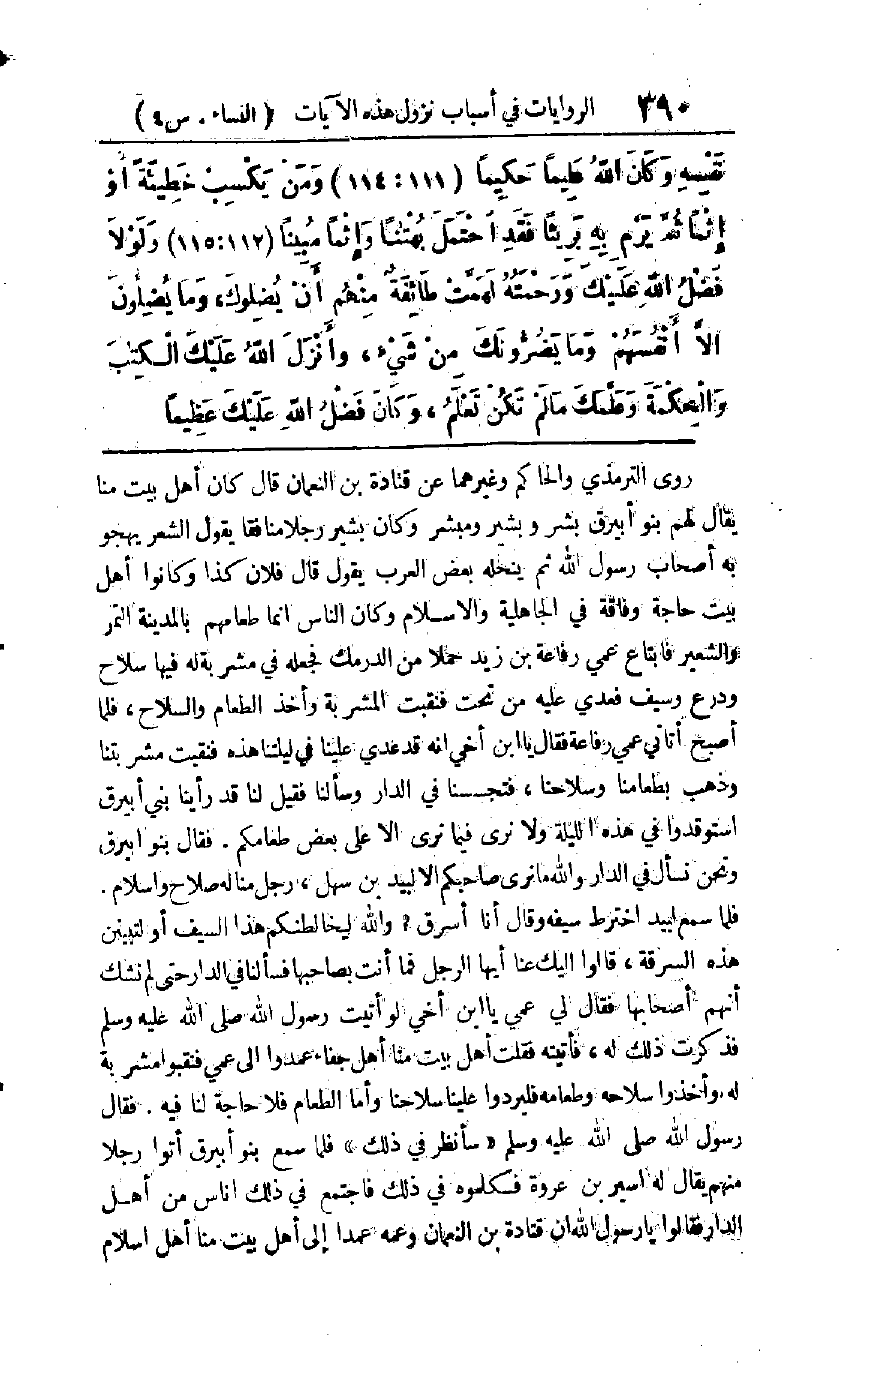 ٣٩٠ الروايات في أسباب نزول هذه الآيات ( النساء . س ٤ )
نَفْسِهِ وَكَانَ اللهُ عَلِيماً حَكِيماً ( ١١١ : ١١٤ ) وَمَنْ يَكْسِبْ خَطِيئَةً أَوْ
إِثْماً ثُمَّ يَرْمِ بِهِ بَرِيئاً فَقَدِ احْتَمَلَ بُهْتَٰناً وَإِثْماً مُبِيناً (١١٢ : ١١٥) وَلَوْلَا
فَضْلُ اللهِ عَلَيْكَ وَرَحْمَتُهُ لَهَمَّتْ طَائِفَةٌ مِنْهُم أَنْ يُضِلوكَ، وَمَا يُضِلُّونَ
الاَّ أَنْفُسَهُمْ وَمَا يَضُرُّونَكَ مِنْ شَيْءٍ ، وأَنْزَلَ اللهُ عَلَيْكَ الْـكِتٰبَ
وَالْحِكْمَةَ وَعَلَّمَكَ مَالَمْ تَكُنْ تَعْلَمُ ، وَكَانَ فَضْلُ اللهِ عَلَيْكَ عَظِيماً
روى الترمذي والحاكم وغيرهما عن قتادة بن النعمان قال كان أهل بيت منا
يقال لهم بنو أبيرق بشر وبشير ومبشر وكان بشير رجلا منافقا يقول الشعر يهجو
به أصحاب رسول الله ثم ينحله بعض العرب يقول قال فلان كذا وكانوا أهل
بيت حاجة وفاقة في الجاهلية والاسـلام وكان الناس انما طعامهم بالمدينة التمر
والشعير فابتاع عمي رفاعة بن زيد حملا من الدرمك فجعله في مشربة له فيها سلاح
ودرع وسيف فعدي عليه من تحت فنقبت المشربة وأخذ الطعام والسلاح ، فلما
أصبح أتاني عمي رفاعة فقال يا ابن أخي انه قد عدي علينا في ليلتنا هذه فنقبت مشربتنا
وذهب بطعامنا وسلاحنا ، فتجسسنا في الدار وسألنا فقيل لنا قد رأينا بني أبيرق
استوقدوا في هذه الليلة ولا نرى فيما نرى الا على بعض طعامكم . فقال بنو ابيرق
ونحن نسأل في الدار والله ما نرى صاحبكم الا لبيد بن سهل ، رجل منا له صلاح واسلام .
فلما سمع لبيد اخترط سيفه وقال أنا أسرق ؟ والله ليخالطنكم هذا السيف أو لتبينن
هذه السرقة ، قالوا اليك عنا أيها الرجل فما أنت بصاحبها فسألنا في الدار حتى لم نشك
أنهم أصحابها فقال لي عمي يا ابن أخي لو أتيت رسول الله صلى الله عليه وسلم
فذكرت ذلك له ، فأتيته فقلت أهل بيت منا أهل جفاء عمدوا الى عمي فنقبوا مشربة
له . وأخذوا سلاحه وطعامه فليردوا علينا سلاحنا وأما الطعام فلا حاجة لنا فيه . فقال
رسول الله صلى الله عليه وسلم « سأنظر في ذلك » فلما سمع بنو أبيرق أتوا رجلا
منهم يقال له اسير بن عروة فكلموه في ذلك فاجتمع في ذلك اناس من أهـل
الدار فقالوا يا رسول الله ان قتادة بن النعمان وعمه عمدا إلى أهل بيت منا أهل اسلام